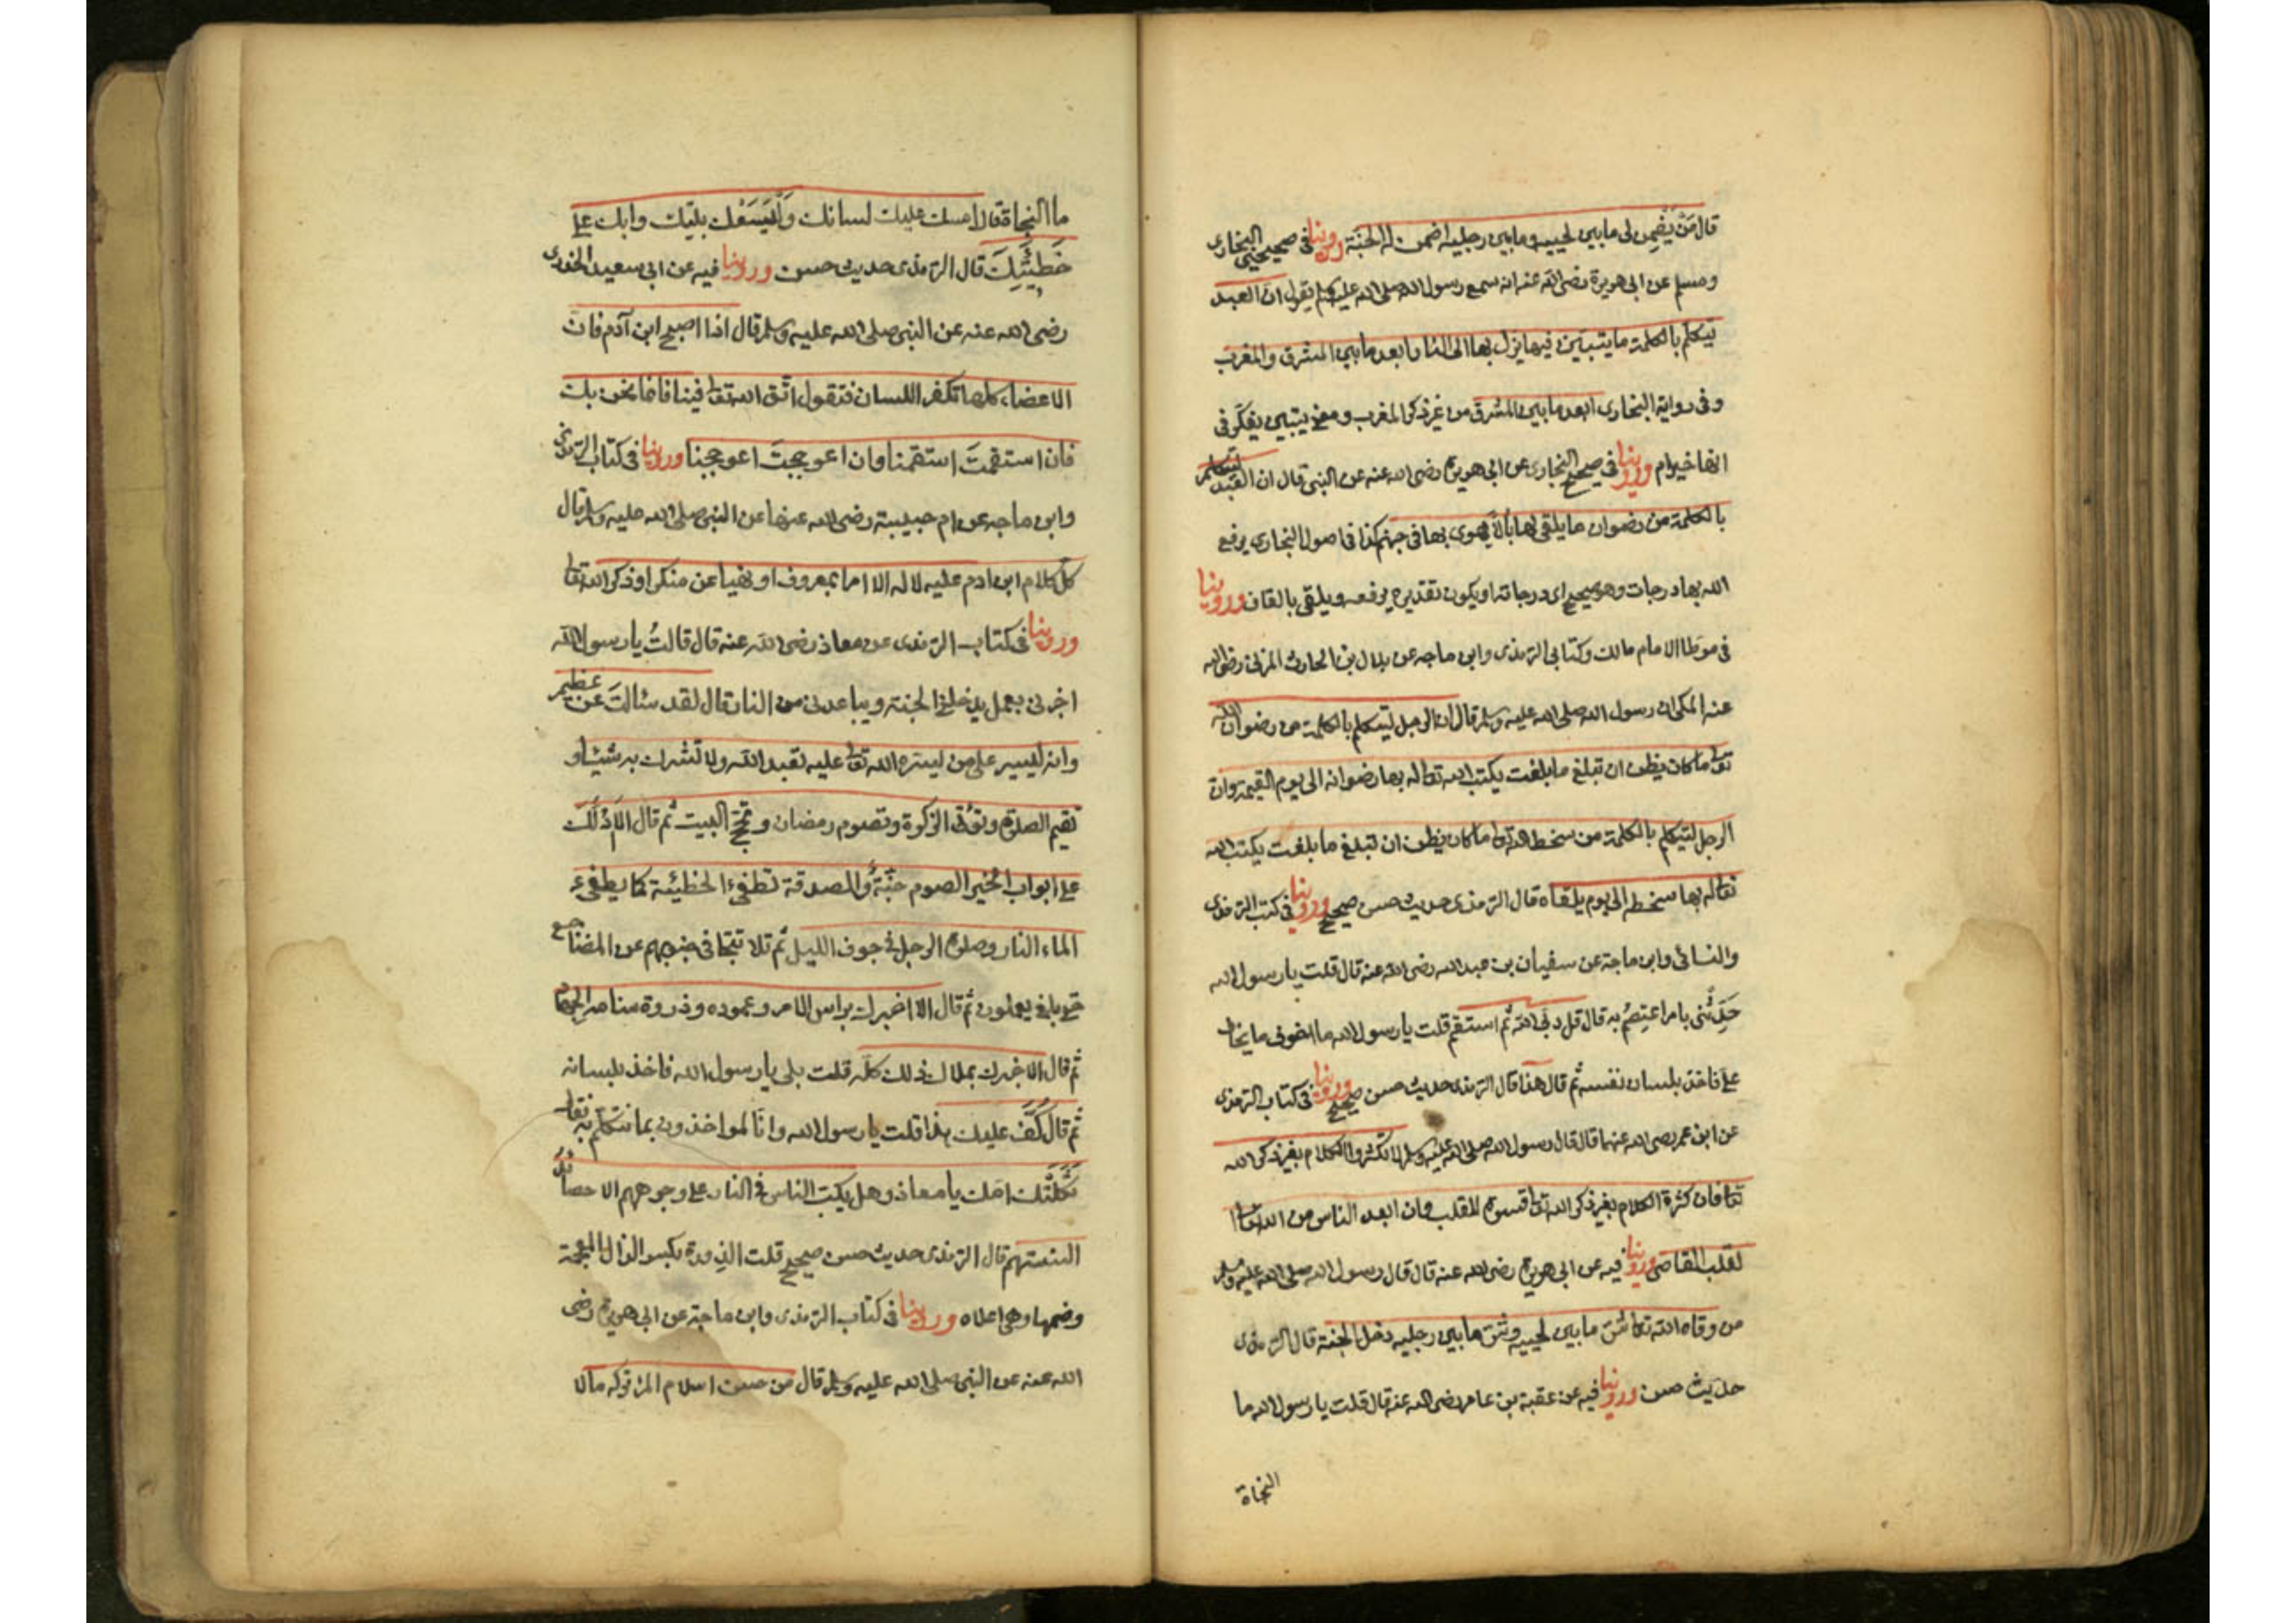 قال مَنْ يَضْمِن لى مابين لحييه ومابين رجليه اضمن له الجنّة وروينا فى صحيحى البخارى
ومسلم عن ابى هريرة رضى الله عنه انه سمع رسول الله صلى الله عليه وسلم يقول ان العبد
يتكلم بالكلمة ما يتبيّن فيها يزل بها الى النار ابعد مابين المشرق والمغرب
وفى رواية البخارى ابعد مابين المشرق من غير ذكر المغرب ومعنى يتبين يفكّر فى
انها خير ام وروينا فى صحيح البخارى عن ابى هريرة رضى الله عنه عن النبى قال ان العبد ليتكلم
بالكلمة من رضوان ما يلقى لها بالا يهوى بها فى جهنم كذا فى اصول البخارى يرفع
الله بها درجات وهو صحيح اى درجاته او يكون تقديره يرفعه ويلقى بالقاف وروينا
فى موطا الامام مالك وكتابى الترمذى وابن ماجه عن بلال بن الحارث المزنى رضى الله
عنه المكى ان رسول الله صلى الله عليه وسلم قال ان الرجل ليتكلم بالكلمة من رضوان الله
تعا ما كان يظن ان تبلغ ما بلغت يكتب الله تعا له بها رضوانه الى يوم القيمة وان
الرجل ليتكلم بالكلمة من سخط الله تعا ما كان يظن ان تبلغ ما بلغت يكتب الله
تعا له بها سخطه الى يوم يلقاه قال الترمذى حديث حسن صحيح وروينا فى كتب الترمذى
والنسائى وابن ماجة عن سفيان بن عبد الله رضى الله عنه قال قلت يا رسول الله
حَدِّثْنى بامر اعتصِمُ به قال قل ربى الله ثم استقم قلت يا رسول الله ما اخوف ما يخاف
على فاخذ بلسان نفسه ثم قال هذا قال الترمذى حديث حسن صحيح وروينا فى كتاب الترمذى
عن ابن عمر رضى الله عنهما قال قال رسول الله صلى الله عليه وسلم لا تكثروا الكلام بغير ذكر الله
تعا فان كثرة الكلام بغير ذكر الله تعا قسوة للقلب وان ابعد الناس من الله تعا
لقلب القاصى وروينا فيه عن ابى هريرة رضى الله عنه قال قال رسول الله صلى الله عليه وسلم
من وقاه الله تعا شرّ مابين لحييه وشرّ مابين رجليه دخل الجنة قال الترمذى
حديث حسن وروينا فيه عن عقبة بن عامر رضى الله عنه قال قلت يا رسول الله ما
النجاة
ما النجاة قال امسك عليك لسانك وَلْيَسَعْك بيتك وابك على
خَطِيئَتِكَ قال الترمذى حديث حسن وروينا فيه عن ابى سعيد الخدرى
رضى الله عنه عن النبى صلى الله عليه وسلم قال اذا اصبح ابن آدم فان
الاعضاء كلها تكفر اللسان فتقول اتّق الله تعا فينا فانما نحن بك
فان استقمتَ استقمنا وان اعوججتَ اعوججنا وروينا فى كتاب الترمذى
وابن ماجه عن ام حبيبة رضى الله عنها عن النبى صلى الله عليه وسلم قال
كلّ كلام ابن ادم عليه لا له الا امرا بمعروف او نهيا عن منكر او ذكر الله تعا
وروينا فى كتاب الترمذى عن معاذ رضى الله عنه قال قالتُ يا رسول الله
اخبرنى بعمل يدخلنى الجنة ويباعدنى من النار قال لقد سئالتَ عن عظيم
وانه ليسير على من يسّره الله تعا عليه تعبد الله ولا تشرك به شيئا و
تقيم الصلوة وتؤتى الزكوة وتصوم رمضان وتحجّ البيت ثم قال الا ادلك
على ابواب الخير الصوم جنّةٌ والصدقة تطفئ الخطيئة كما يطفئ
الماء النار وصلوة الرجل فى جوف الليل ثم تلا تتجافى جنوبهم عن المضاجع
حتى بلغ يعملون ثم قال الا اخبرك براس الامر وعموده وذروة سنامه الجهاد
ثم قال الا اخبرك بملاك ذلك كله قلت بلى يا رسول الله فاخذ بلسانه
ثم قال كُفَّ عليك هذا قلت يا رسول الله وانا لمواخذون بما نتكلم به فقال
ثَكِلَتْك امّك يا معاذ وهل يكبّ الناس فى النار على وجوههم الا حصائد
السنتهم قال الترمذى حديث حسن صحيح قلت الذروة بكسر الذال المعجمة
وضمها وهى اعلاه وروينا فى كتاب الترمذى وابن ماجة عن ابى هريرة رضى
الله عنه عن النبى صلى الله عليه وسلم قال من حسن اسلام المرء تركه مالا